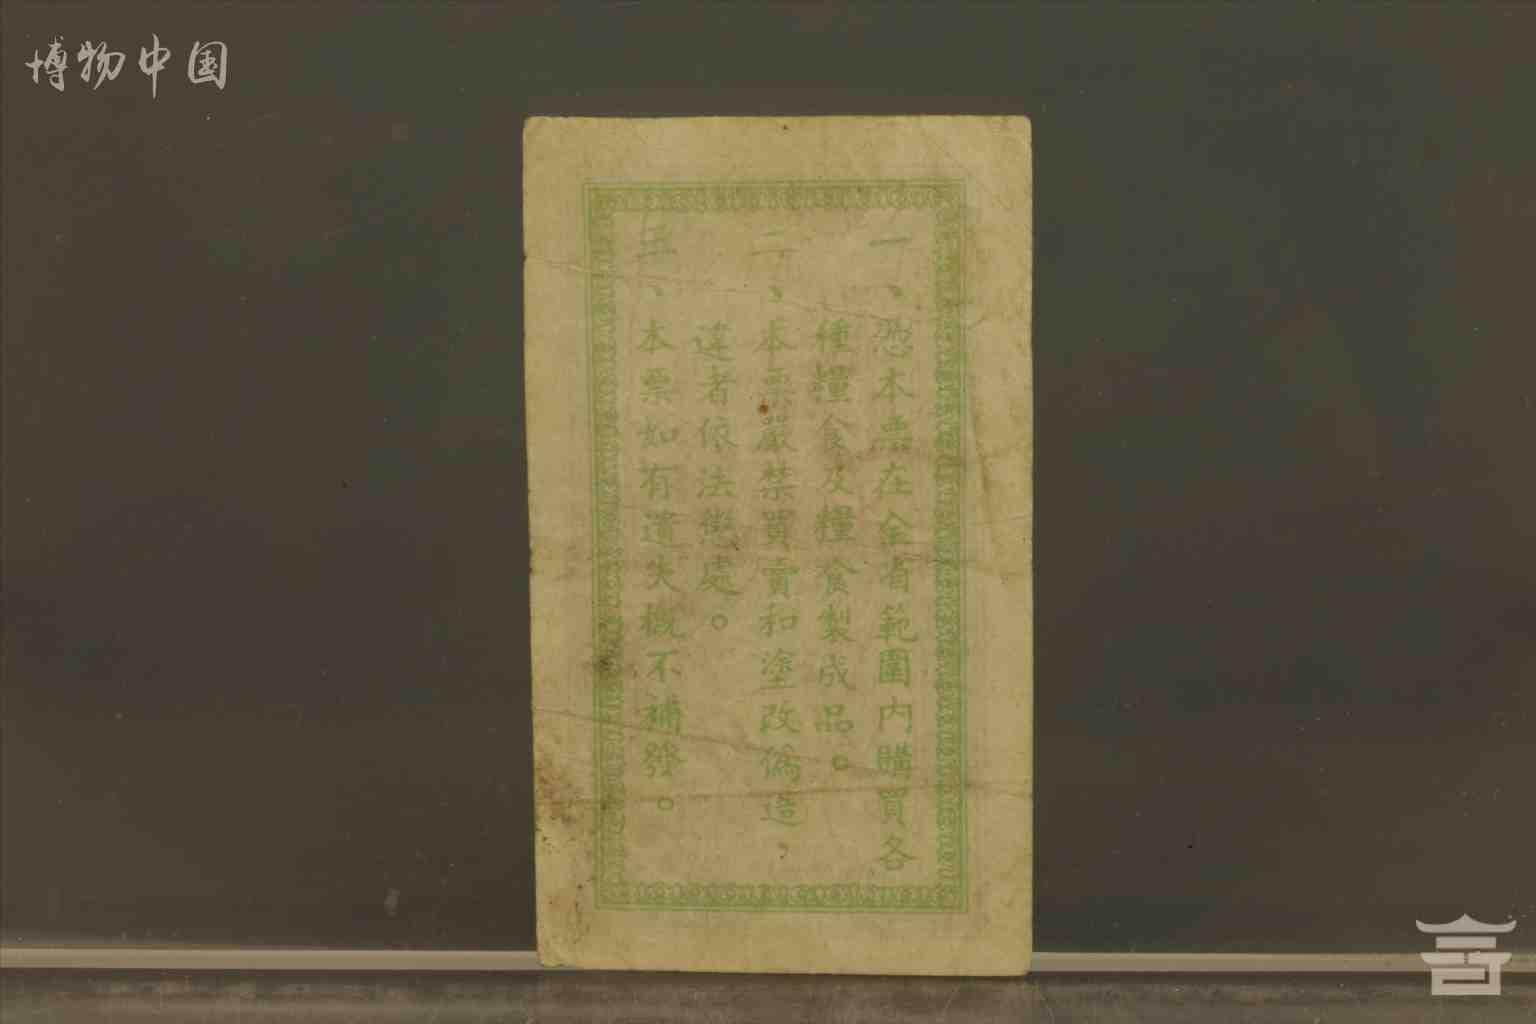 博物中国
一、憑本票在全省範圍内購買各
種糧食及糧食製成品。
二、本票嚴禁買賣和塗改偽造，
違者依法懲處。
三、本票如有遺失概不補發。